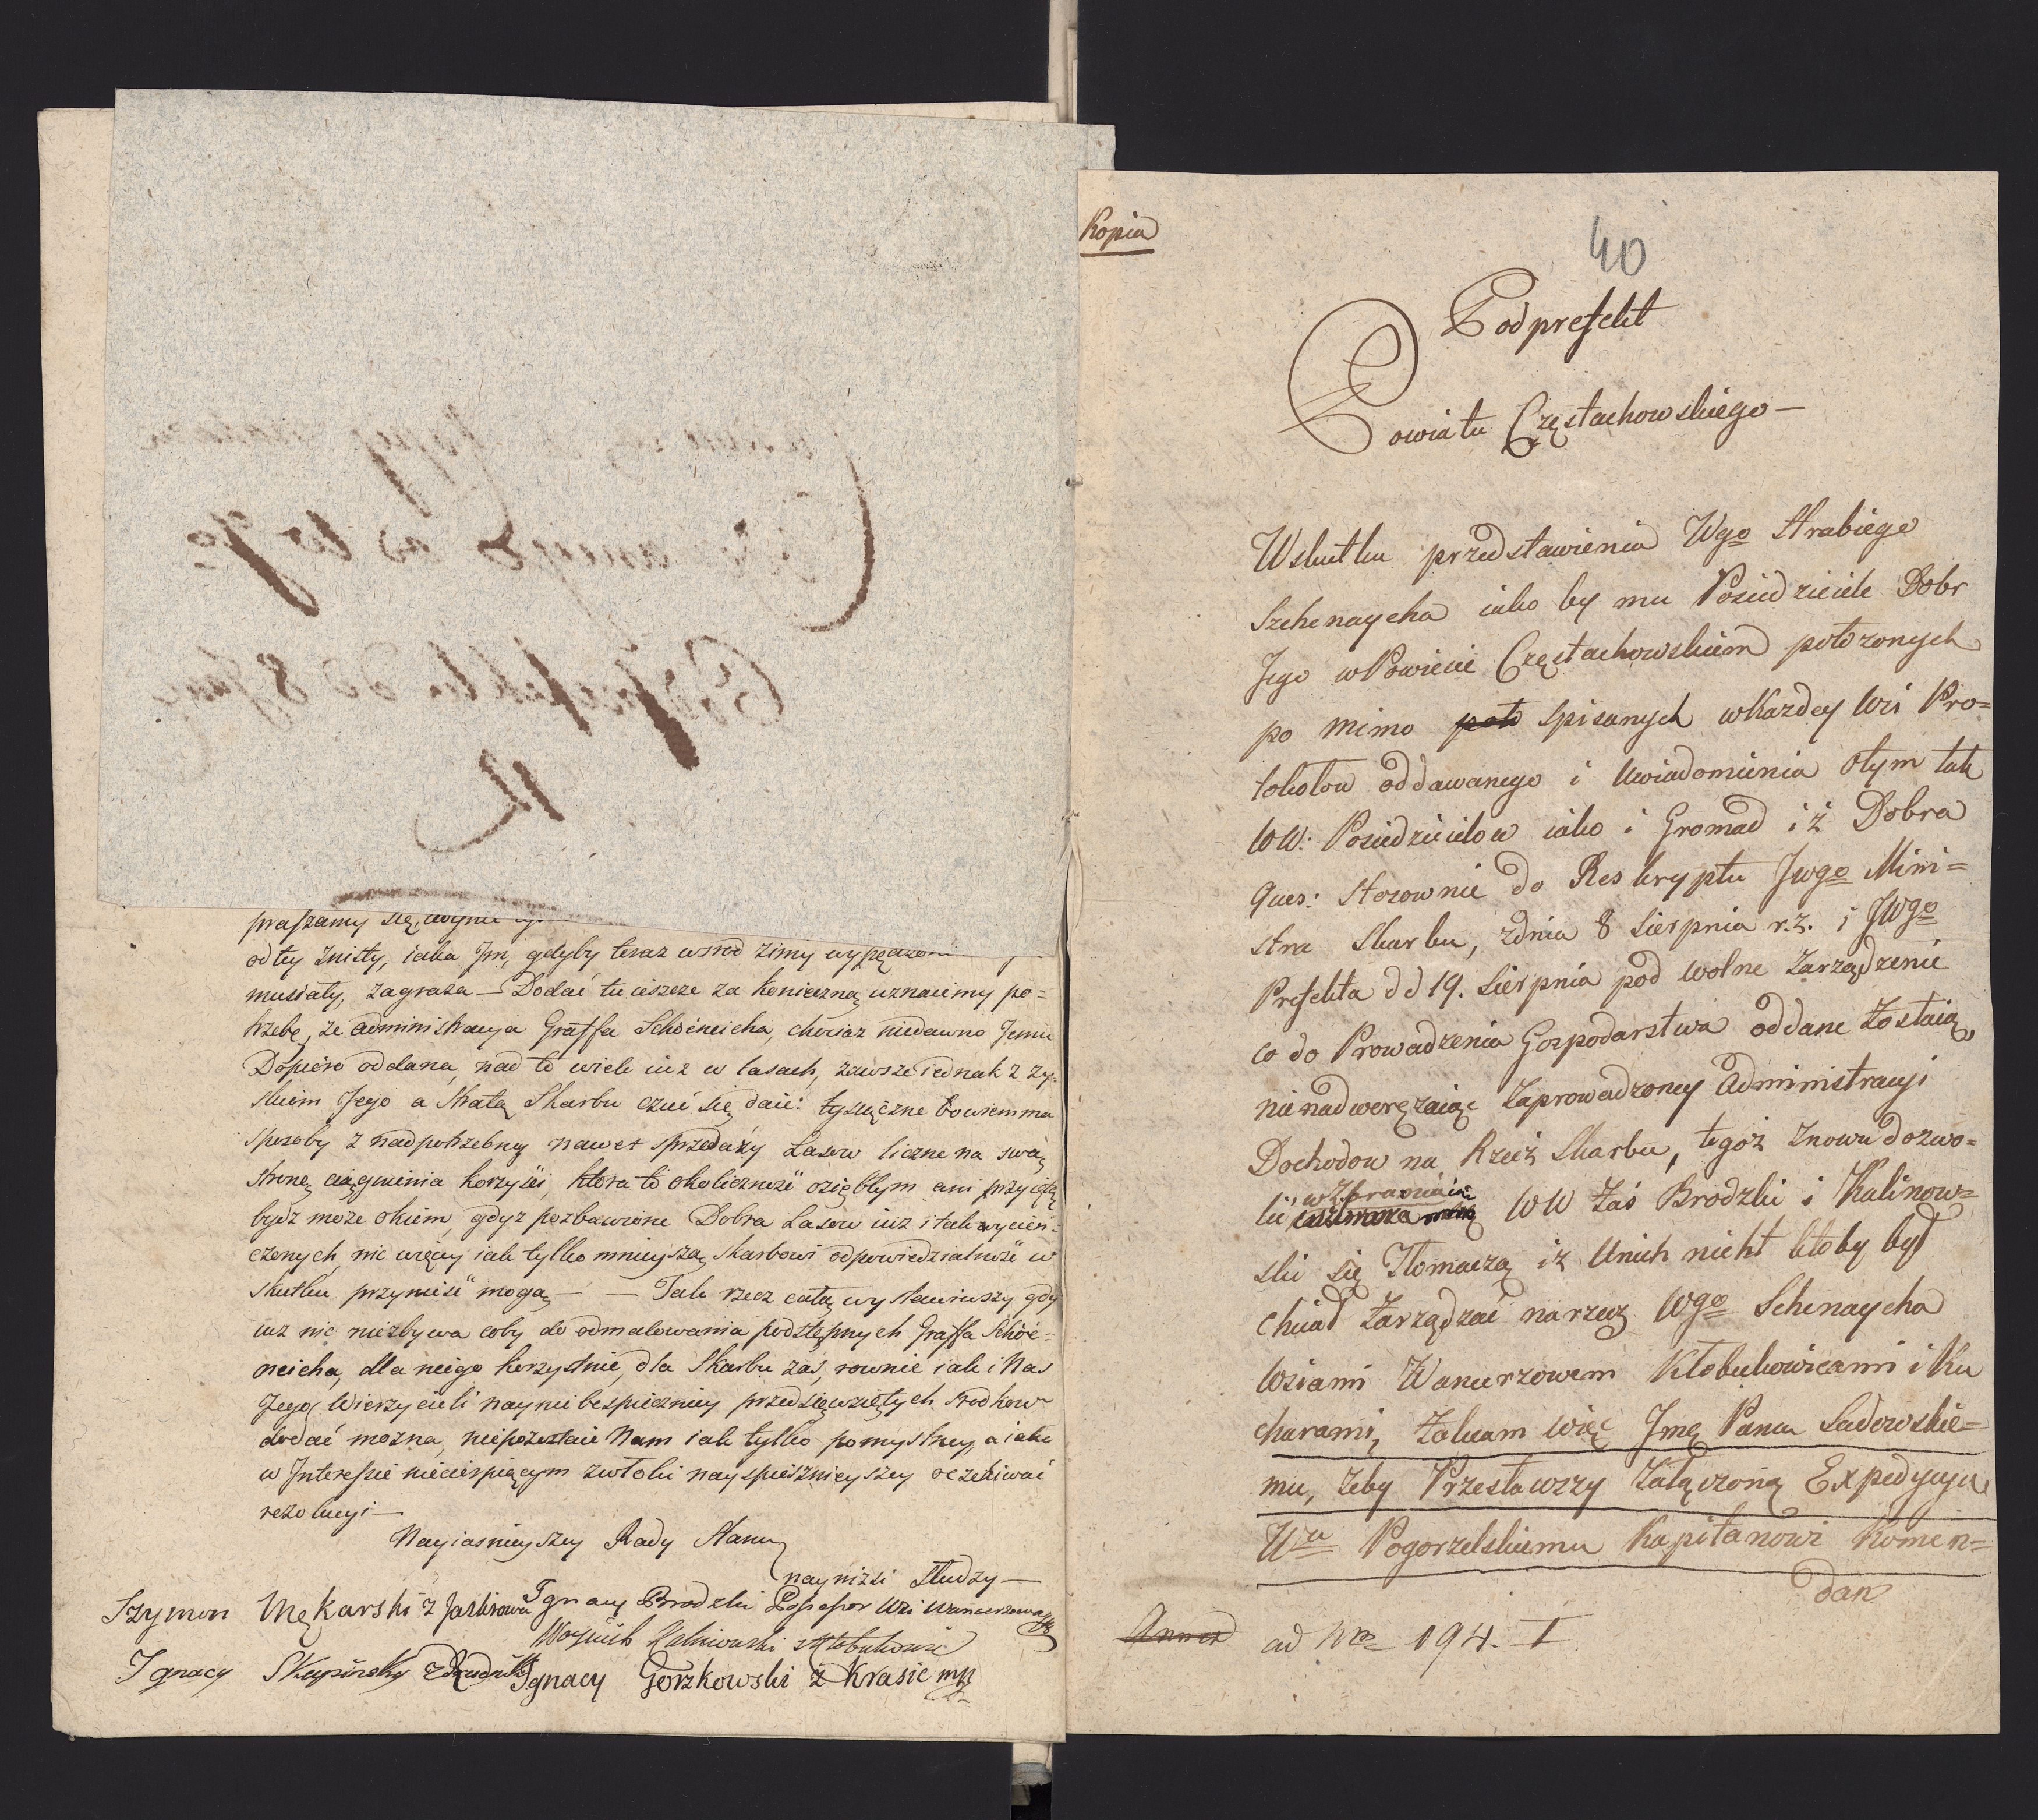 praszamy się,
od tey znisty, iaka Im, gdyby teraz wsrod zimy
musiały, zagraża — Dodać tu ieszcze za konieczną uznaiemy po=
trzebę, że administracya Graffa Schöneicha, chociaz niedawno Jemu
Dopiero oddana, nad to wiele iuż w lasach, zawsze iednak z Zy-
skiem Jego a Stratą Skarbu czuć się daie: tysiączne bowiem ma
sposoby z nadpotrzebney nawet sprzedaży Lasow liczne na swą
stronę ciągnienia korzyści, ktora to okoliczność oziębłym ani przyiętą
bydz może okiem, gdyz pozbawione Dobra Lasow iuz i tak wycień-
czonych, nic więcey iak tylko mnieyszą Skarbowi odpowiedzialność w
skutku przynieść mogą — — Tak rzecz całą wystawiwszy gdy
iuz nic niezbywa coby do odmalowania podstępnych Graffa Schöe=
neicha, dla niego korzystnie, dla Skarbu zaś, rownie iak i Nas
Jego Wierzycieli nayniebespieczniey przedsięwziętych srodkow
dodać można, niepozostaie Nam iak tylko pomyslney, a iako
w Interessie niecierpiącym zwłoki nayspiesznieyszey oczekiwać
rezolucyi —
Nayiasnieyszey Rady Stanu
nayniżsi Słudzy —
Szymon Mękarski z Jaskrowa Ignacy Brodzki Possessor Wsi Wancerzowa
Woyciech Kalinowski z Kłobukowic
Ignacy Skupiński z Rudnik Ignacy Gorzkowski z Krasic mp
Kopia
40
Podprefekt
Powiatu Częstachowskiego —
Wskutku przedstawienia Wgo Hrabiego
Szchenaycha iako by mu Posiedziciele Dobr
Jego w Powiecie Częstachowskiem położonych
po mimo poło spisanych w Kazdey Wsi Pro=
tokołow oddawanego i Uwiadomienia o tym tak
WW: Posiedzicielow iako i Gromad iż Dobra
Ques: stosownie do Reskryptu JWgo Mini=
stra Skarbu, z dnia 8 Sierpnia r.z. i JWgo
Prefekta dd 19. Sierpnia pod wolne Zarządzenie
co do Prowadzenia Gospodarstwa oddane Zostaią,
nienadwerężaiąc Zaprowadzoney Administracyi
Dochodow na Rzecz Skarbu, tegoż znowu dozwo=
lić wzbraniaią WW Zaś Brodzki i Kalinow=
ski się Tłomaczą iż Unich nicht ktoby był
chciał Zarządzać na rzecz Wgo Schenaycha
Wsiami Wancerzowem Kłobukowicami i Ku
charami, Zalecam więc Jmę Panu Sadowskie=
mu, Zeby Przesławszy Załączoną Expedycyę
Wu Pogorzelskiemu Kapitanowi Komen=
dan
Annex ad Nro 194. I